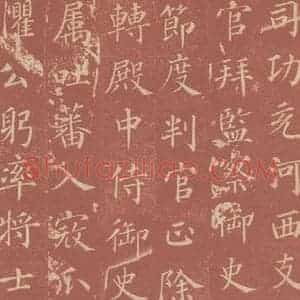 司功充河西支
官拜監察御史
節度判官正除
轉殿中侍御史
属吐蕃入寇瓜
懼公躬率將士